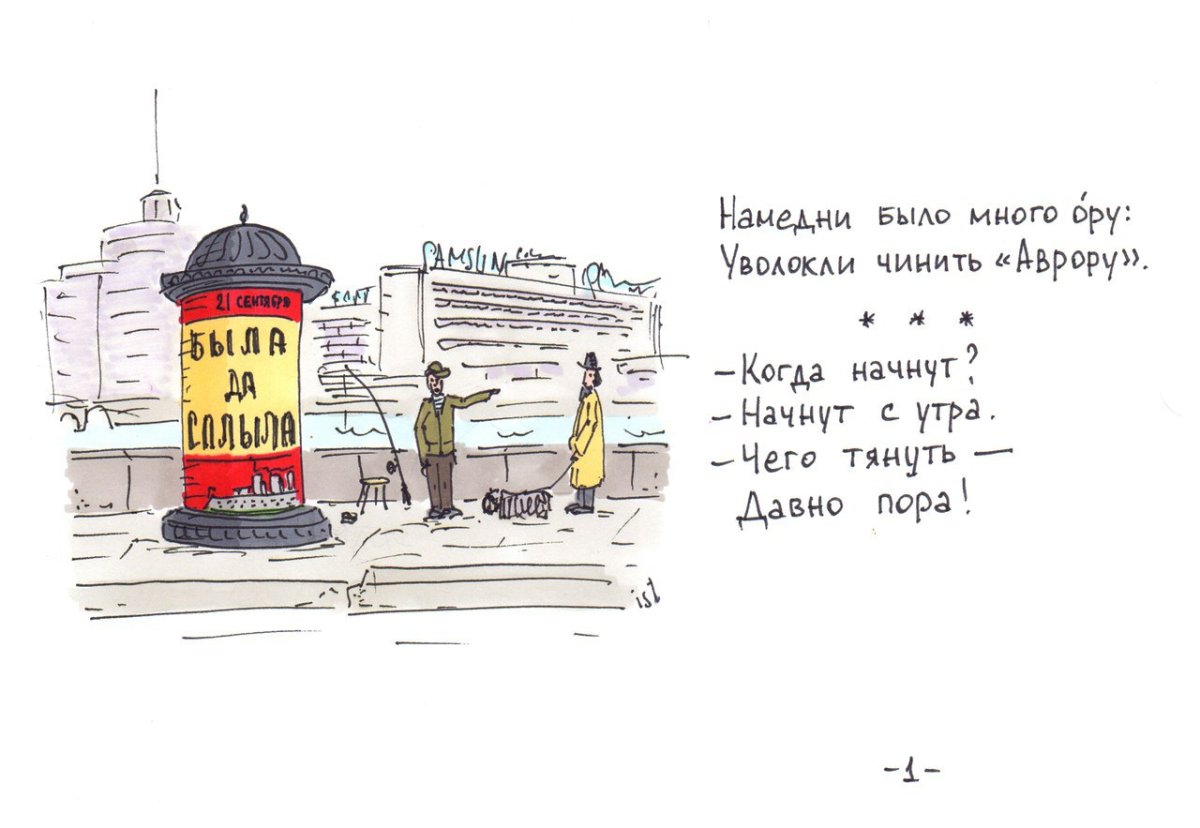 21 СЕНТЯБРЯ
БЫЛА
ДА
СПЛЫЛА
SAMSUN
ist
Намедни было много о́ру:
Уволокли чинить «Аврору».
* * *
– Когда начнут?
– Начнут с утра.
– Чего тянуть —
Давно пора!
-1-